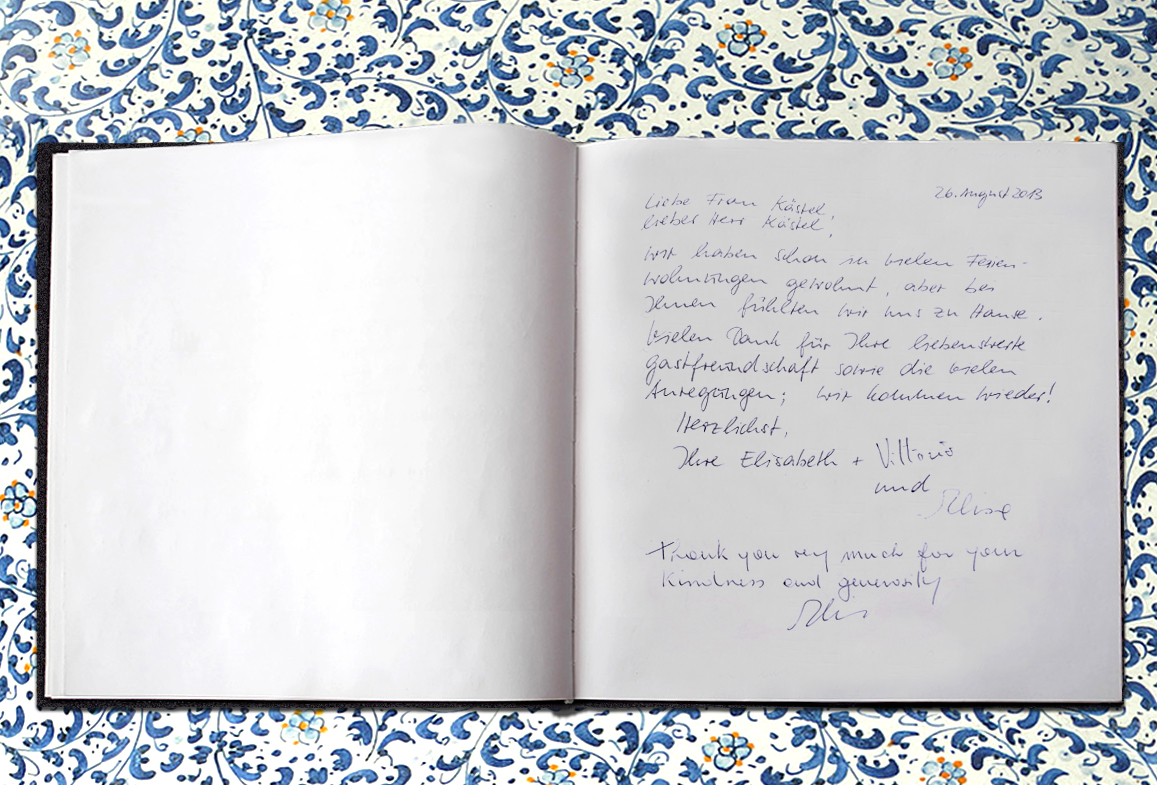 26. August 2013
Liebe Frau Kästel,
lieber Herr Kästel,
wir haben schon in vielen Ferien-
wohnungen gewohnt, aber bei
Ihnen fühlten wir uns zu Hause.
Vielen Dank für Ihre liebenswerte
Gastfreundschaft sowie die vielen
Anregungen; wir kommen wieder!
Herzlichst,
Ihre Elisabeth + Vittorio
und
Thank you very much for your
kindness and generosity